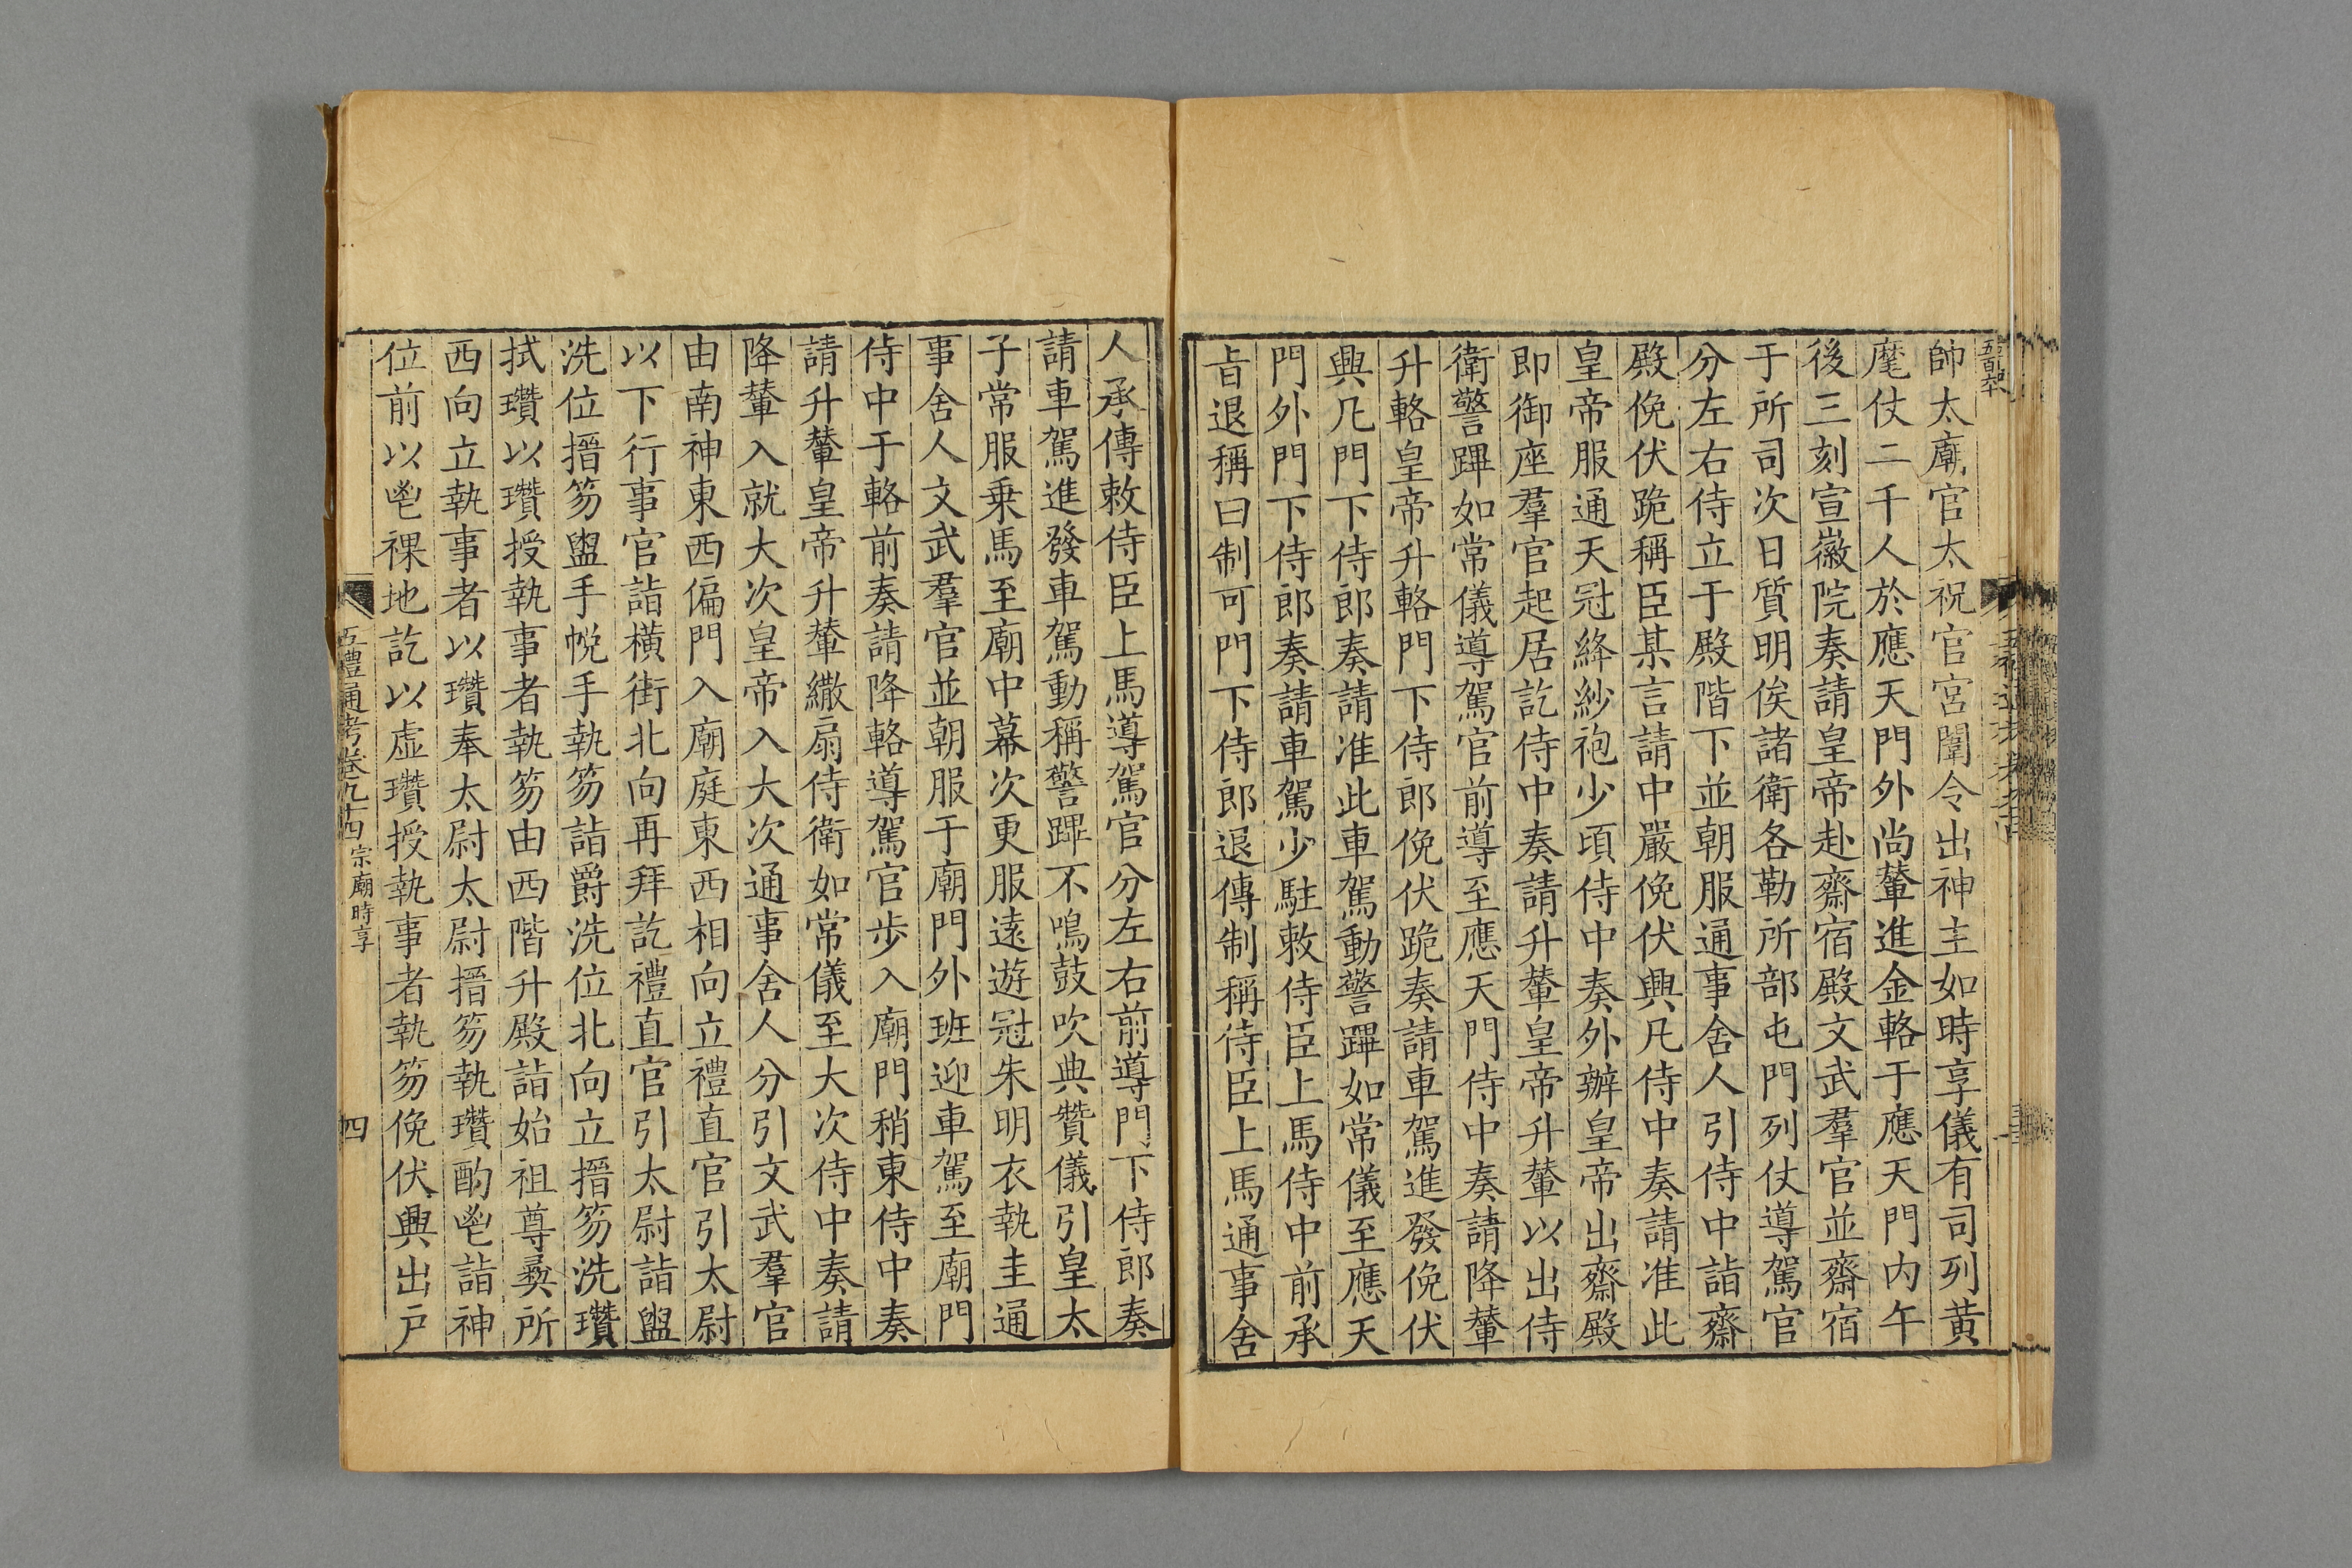 帥太廟官太祝官宮闈令出神主如時享儀有司列黄
麾仗二千人於應天門外尚輦進金輅于應天門内午
後三刻宣徽院奏請皇帝赴齋宿殿文武羣官並齋宿
于所司次日質明俟諸衛各勒所部屯門列仗導駕官
分左右侍立于殿階下並朝服通事舍人引侍中詣齋
殿俛伏跪稱臣某言請中嚴俛伏興凡侍中奏請准此
皇帝服通天冠絳紗袍少頃侍中奏外辦皇帝出齋殿
即御座羣官起居訖侍中奏請升輦皇帝升輦以出侍
衛警蹕如常儀導駕官前導至應天門侍中奏請降輦
升輅皇帝升輅門下侍郎俛伏跪奏請車駕進發俛伏
興凡門下侍郎奏請准此車駕動警蹕如常儀至應天
門外門下侍郎奏請車駕少駐敕侍臣上馬侍中前承
旨退稱曰制可門下侍郎退傳制稱侍臣上馬通事舍
人承傳敕侍臣上馬導駕官分左右前導門下侍郎奏
請車駕進發車駕動稱警蹕不鳴鼓吹典贊儀引皇太
子常服乗馬至廟中幕次更服遠遊冠朱明衣執圭通
事舍人文武羣官並朝服于廟門外班迎車駕至廟門
侍中于輅前奏請降輅導駕官步入廟門稍東侍中奏
請升輦皇帝升輦繖扇侍衛如常儀至大次侍中奏請
降輦入就大次皇帝入大次通事舍人分引文武羣官
由南神東西偏門入廟庭東西相向立禮直官引太尉
以下行事官詣横街北向再拜訖禮直官引太尉詣盥
洗位搢笏盥手帨手執笏詣爵洗位北向立搢笏洗瓚
拭瓚以瓚授執事者執笏由西階升殿詣始祖尊彛所
西向立執事者以瓚奉太尉太尉搢笏執瓚酌鬯詣神
位前以鬯祼地訖以虚瓚授執事者執笏俛伏興出户
五禮通考卷九十四 宗廟時享 四